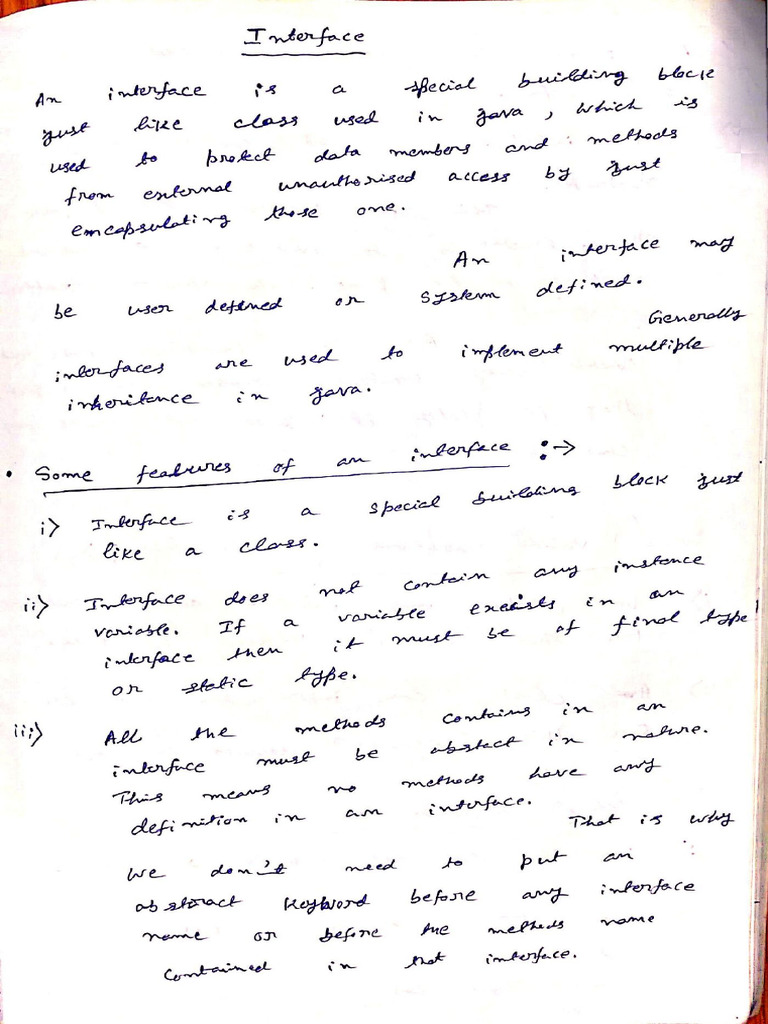 Interface
An interface is a special building block
just like class used in java, which is
used to protect data members and methods
from external unauthorised access by just
encapsulating those one.
An interface may
be user defined or system defined.
Generally
interfaces are used to implement multiple
inheritence in java.
• Some features of an interface :→
i> Interface is a special building block just
like a class.
ii> Interface does not contain any instence
variable. If a variable excists in an
interface then it must be of final type
or static type.
iii> All the methods contains in an
interface must be abstact in nature.
This means no methods have any
definition in an interface.
That is why
we don't need to put an
abstract keyword before any interface
name or before the methods name
contained in that interface.